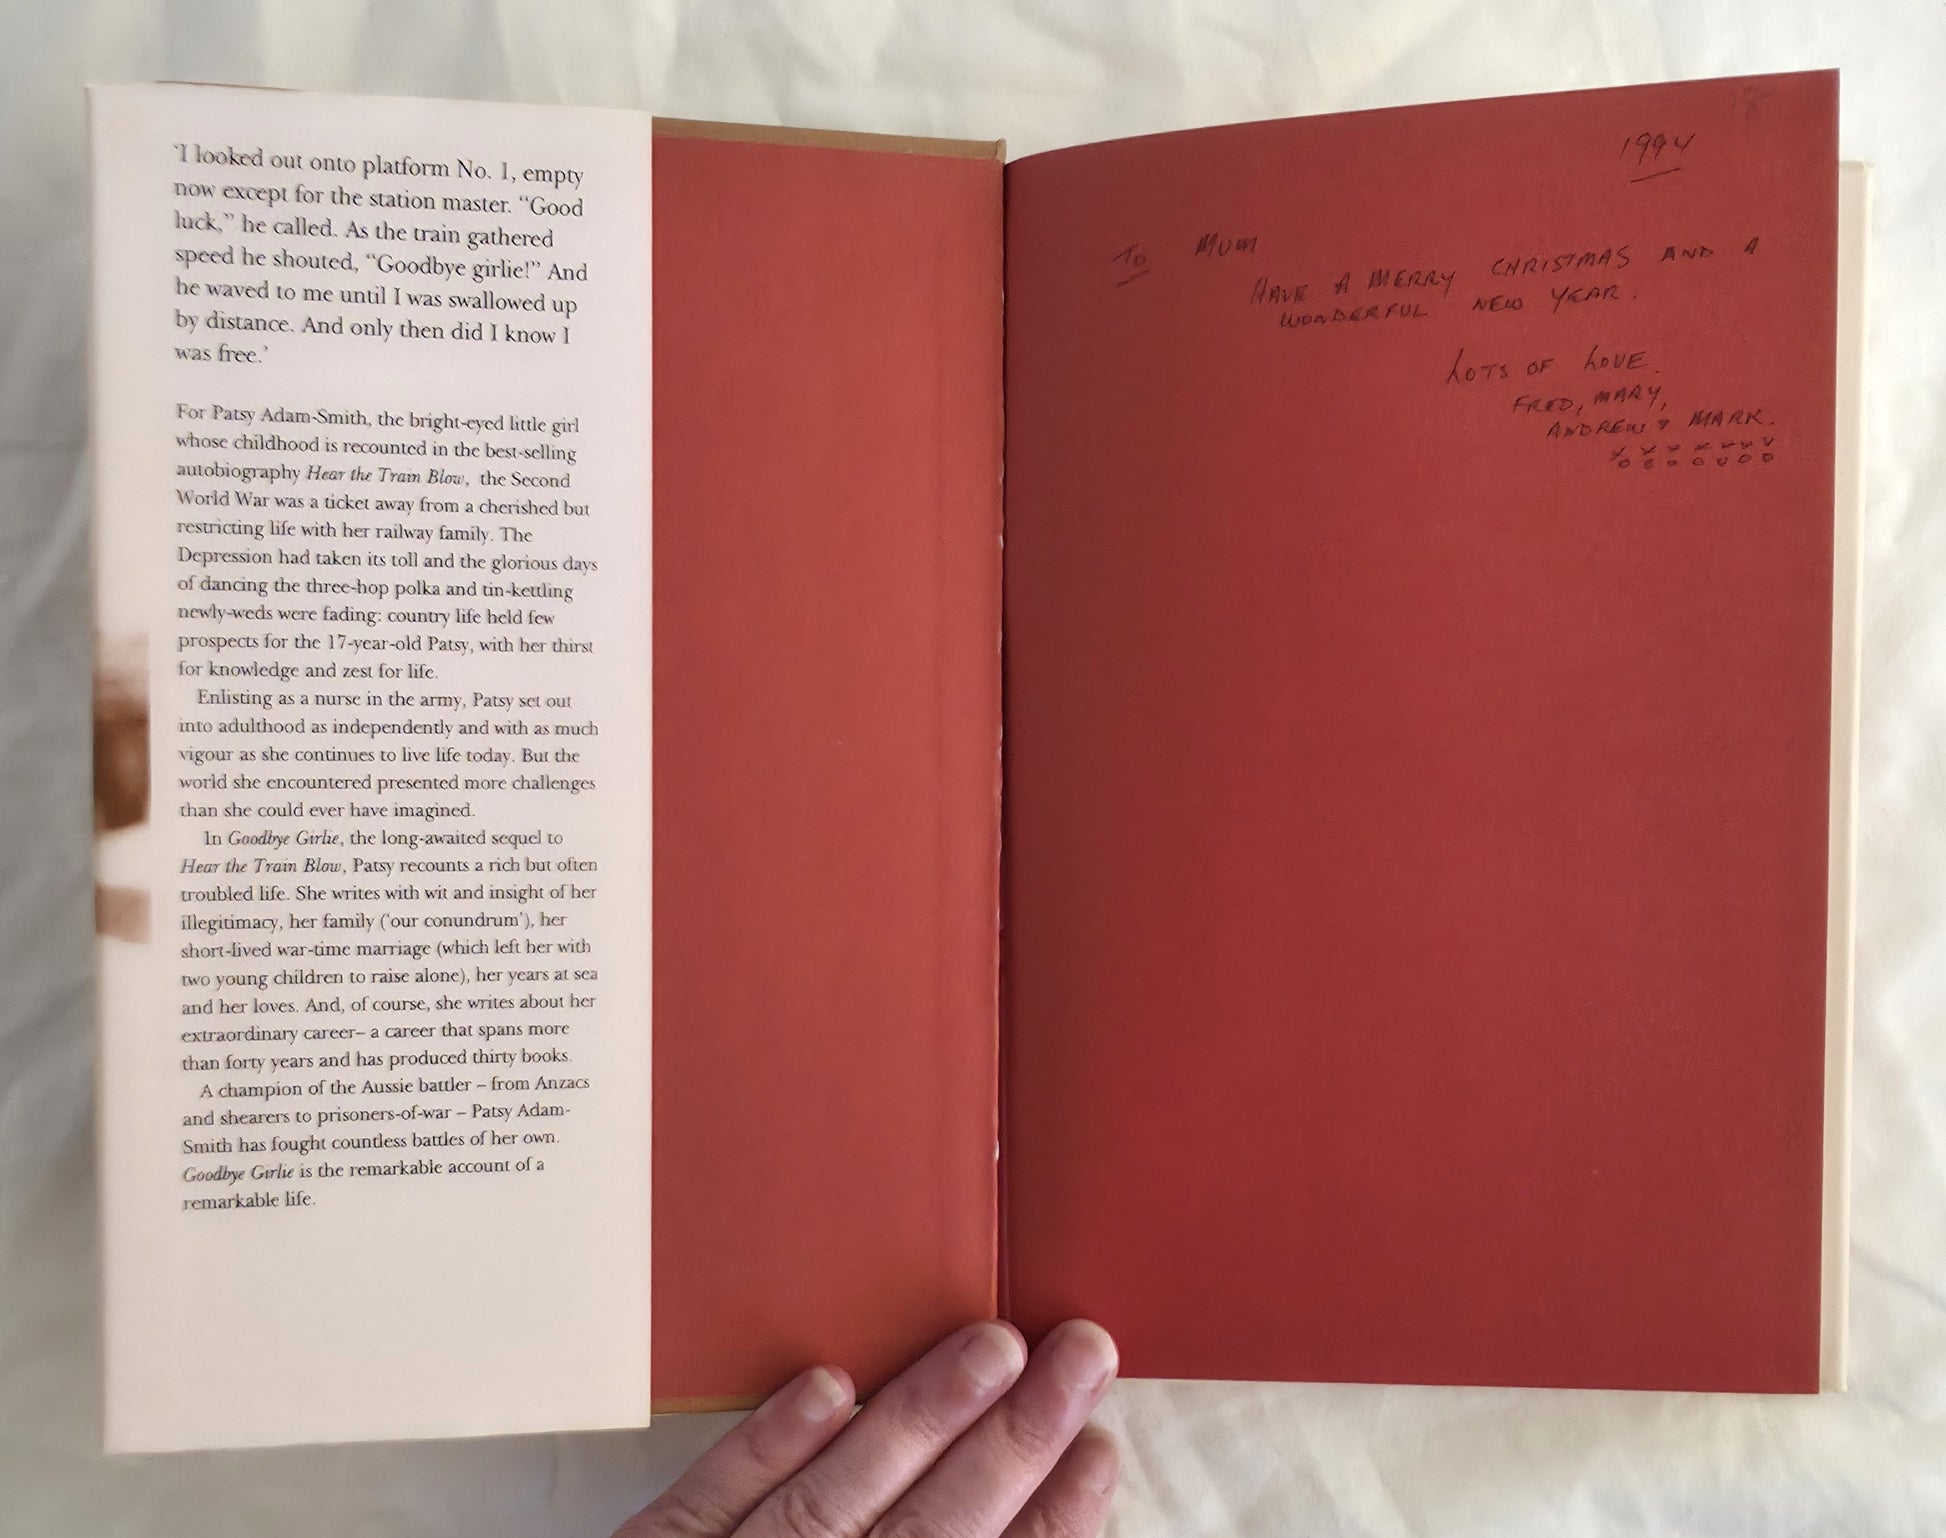 ‘I looked out onto platform No. 1, empty
now except for the station master. “Good
luck,” he called. As the train gathered
speed he shouted, “Goodbye girlie!” And
he waved to me until I was swallowed up
by distance. And only then did I know I
was free.’
For Patsy Adam-Smith, the bright-eyed little girl
whose childhood is recounted in the best-selling
autobiography Hear the Train Blow, the Second
World War was a ticket away from a cherished but
restricting life with her railway family. The
Depression had taken its toll and the glorious days
of dancing the three-hop polka and tin-kettling
newly-weds were fading: country life held few
prospects for the 17-year-old Patsy, with her thirst
for knowledge and zest for life.
Enlisting as a nurse in the army, Patsy set out
into adulthood as independently and with as much
vigour as she continues to live life today. But the
world she encountered presented more challenges
than she could ever have imagined.
In Goodbye Girlie, the long-awaited sequel to
Hear the Train Blow, Patsy recounts a rich but often
troubled life. She writes with wit and insight of her
illegitimacy, her family (‘our conundrum’), her
short-lived war-time marriage (which left her with
two young children to raise alone), her years at sea
and her loves. And, of course, she writes about her
extraordinary career– a career that spans more
than forty years and has produced thirty books.
A champion of the Aussie battler – from Anzacs
and shearers to prisoners-of-war – Patsy Adam-
Smith has fought countless battles of her own.
Goodbye Girlie is the remarkable account of a
remarkable life.
1994
To MUM
HAVE A MERRY CHRISTMAS AND A
WONDERFUL NEW YEAR.
LOTS OF LOVE.
FRED, MARY,
ANDREW & MARK.
X X X X X X X
O O O O O O O